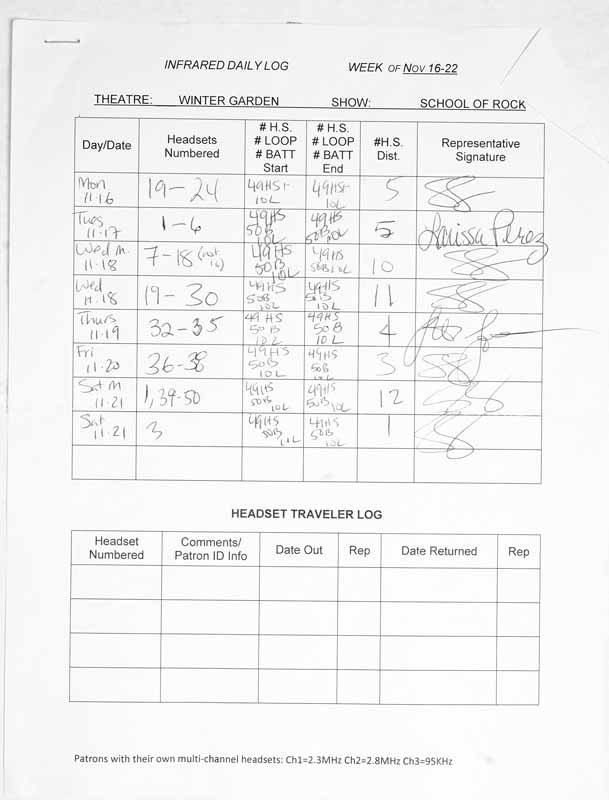 INFRARED DAILY LOG WEEK OF NOV 16-22
THEATRE: WINTER GARDEN SHOW: SCHOOL OF ROCK
Day/Date Headsets Numbered # H.S. # LOOP # BATT Start # H.S. # LOOP # BATT End #H.S. Dist. Representative Signature
Mon 11·16 19-24 49HS 10L 49HS 10L 5
Tues 11·17 1-6 49HS 50B 10L 49HS 50B 10L 5 Larissa Perez
Wed M. 11·18 7-18 (not 49HS 50B 10L 49HS 50B 10L 10
Wed 11·18 19-30 49HS 50B 10L 49HS 50B 10L 11
Thurs 11·19 32-35 49HS 50B 10L 49HS 50B 10L 4
Fri 11·20 36-38 49HS 50B 10L 49HS 50B 10L 3
Sat M 11·21 1,39-50 49HS 50B 10L 49HS 50B 10L 12
Sat 11·21 3 49HS 50B 10L 49HS 50B 10L 1
HEADSET TRAVELER LOG
Headset Numbered Comments/ Patron ID Info Date Out Rep Date Returned Rep
Patrons with their own multi-channel headsets: Ch1=2.3MHz Ch2=2.8MHz Ch3=95KHz